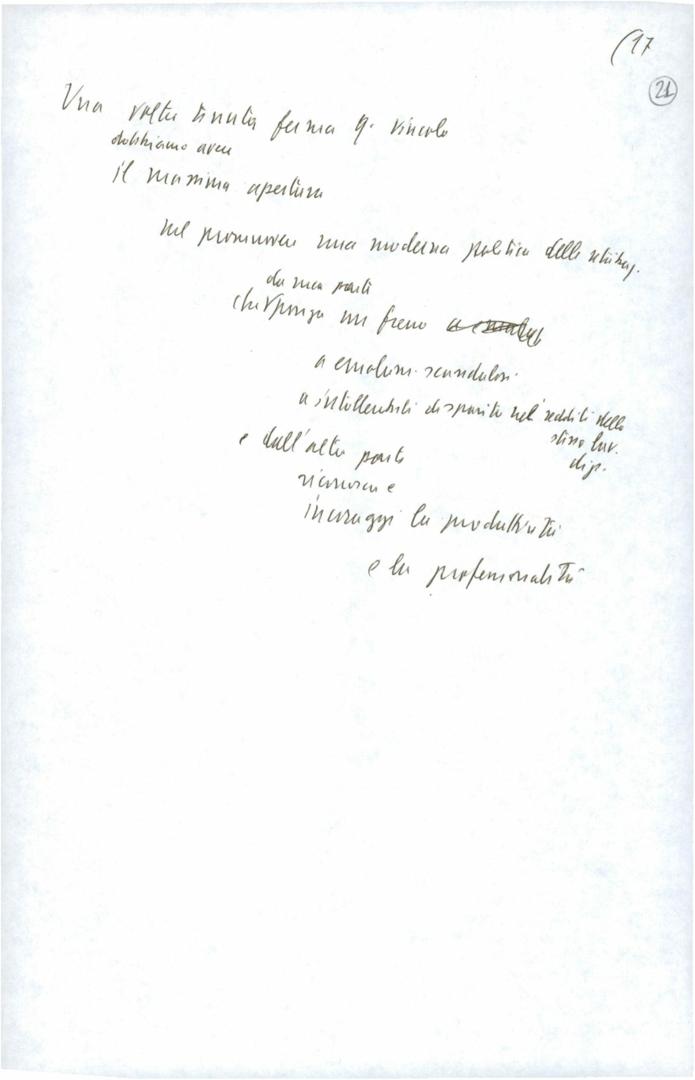 (17
21
Una volta tenuta ferma q. vincolo
dobbiamo avere
il massima apertura
nel promuovere una moderna politica delle retribuz.
da una parte
che ponga un freno
a emolum. scandalosi
a intollerabili disparità nei redditi dello
stesso lav.
dip.
e dall'altra parte
riconosca e
incoraggi la produttività
e la professionalità